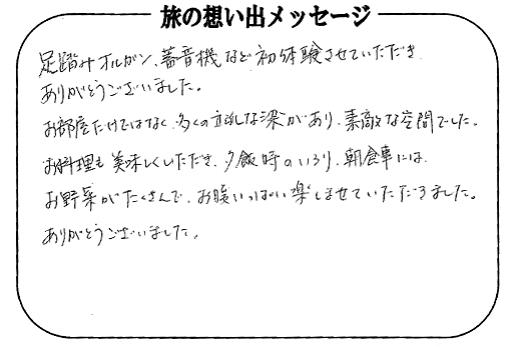 旅の想い出メッセージ
足踏みオルガン、蓄音機など初体験させていただき
ありがとうございました。
お部屋だけではなく、多くの立派な梁があり、素敵な空間でした。
お料理も美味しくいただき、夕飯時のいろり、朝食事には、
お野菜がたくさんで、お腹いっぱい楽しませていただきました。
ありがとうございました。